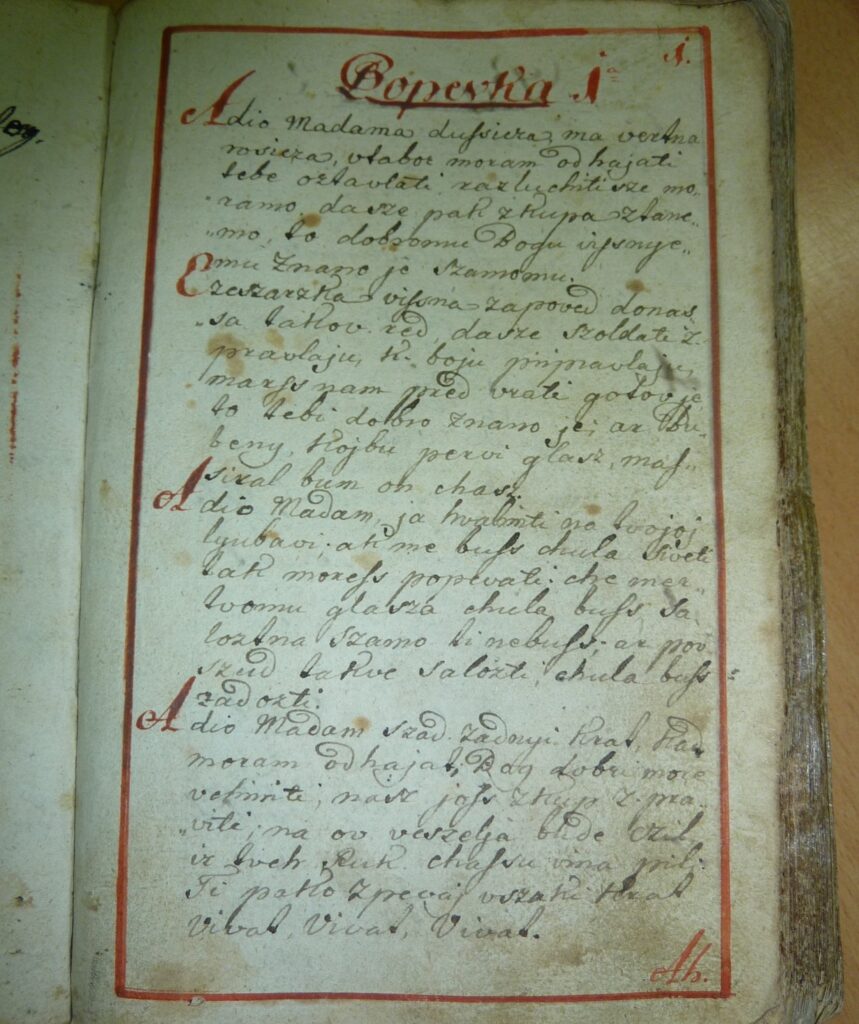 1.
Popevka 1ª
Adio Madama dussicza, ma vertna
rosicza, vtabor moram odhajati
tebe oztavlati, razluchitisze mo-
ramo, dasze pak zkupa ztane-
mo, to dobromu Bogu izssnye-
mu znano je szamomu.
Czeszarzka vissna zapoved donas-
sa takov red, dasze szoldati z-
pravlaju, k. boju pripravlaju,
marss nam pred vrati gotov je,
to tebi dobro znano je; ar Bu-
beny, kojbu pervi glasz, mas-
siral bum on chasz.
Adio Madam, ja hvalimti na tvojoj
lyubavi; ak me buss chula
tak moress popevati: che mer-
tvomu glasza chula buss, sa-
loztna szamo ti nebuss; ar pov
szud takve salozti, chula buss
radozti.
Adio Madam szad zadnyi krat, kad
moram odhajat, Bog dobri more
vchiniti, nasz joss zkup z-pra-
viti; na ov veszelja bude czil
iz tveh Ruk chassu vina pil:
Ti pako zpevaj vszaki krat
Vivat, Vivat, Vivat.
Ah.